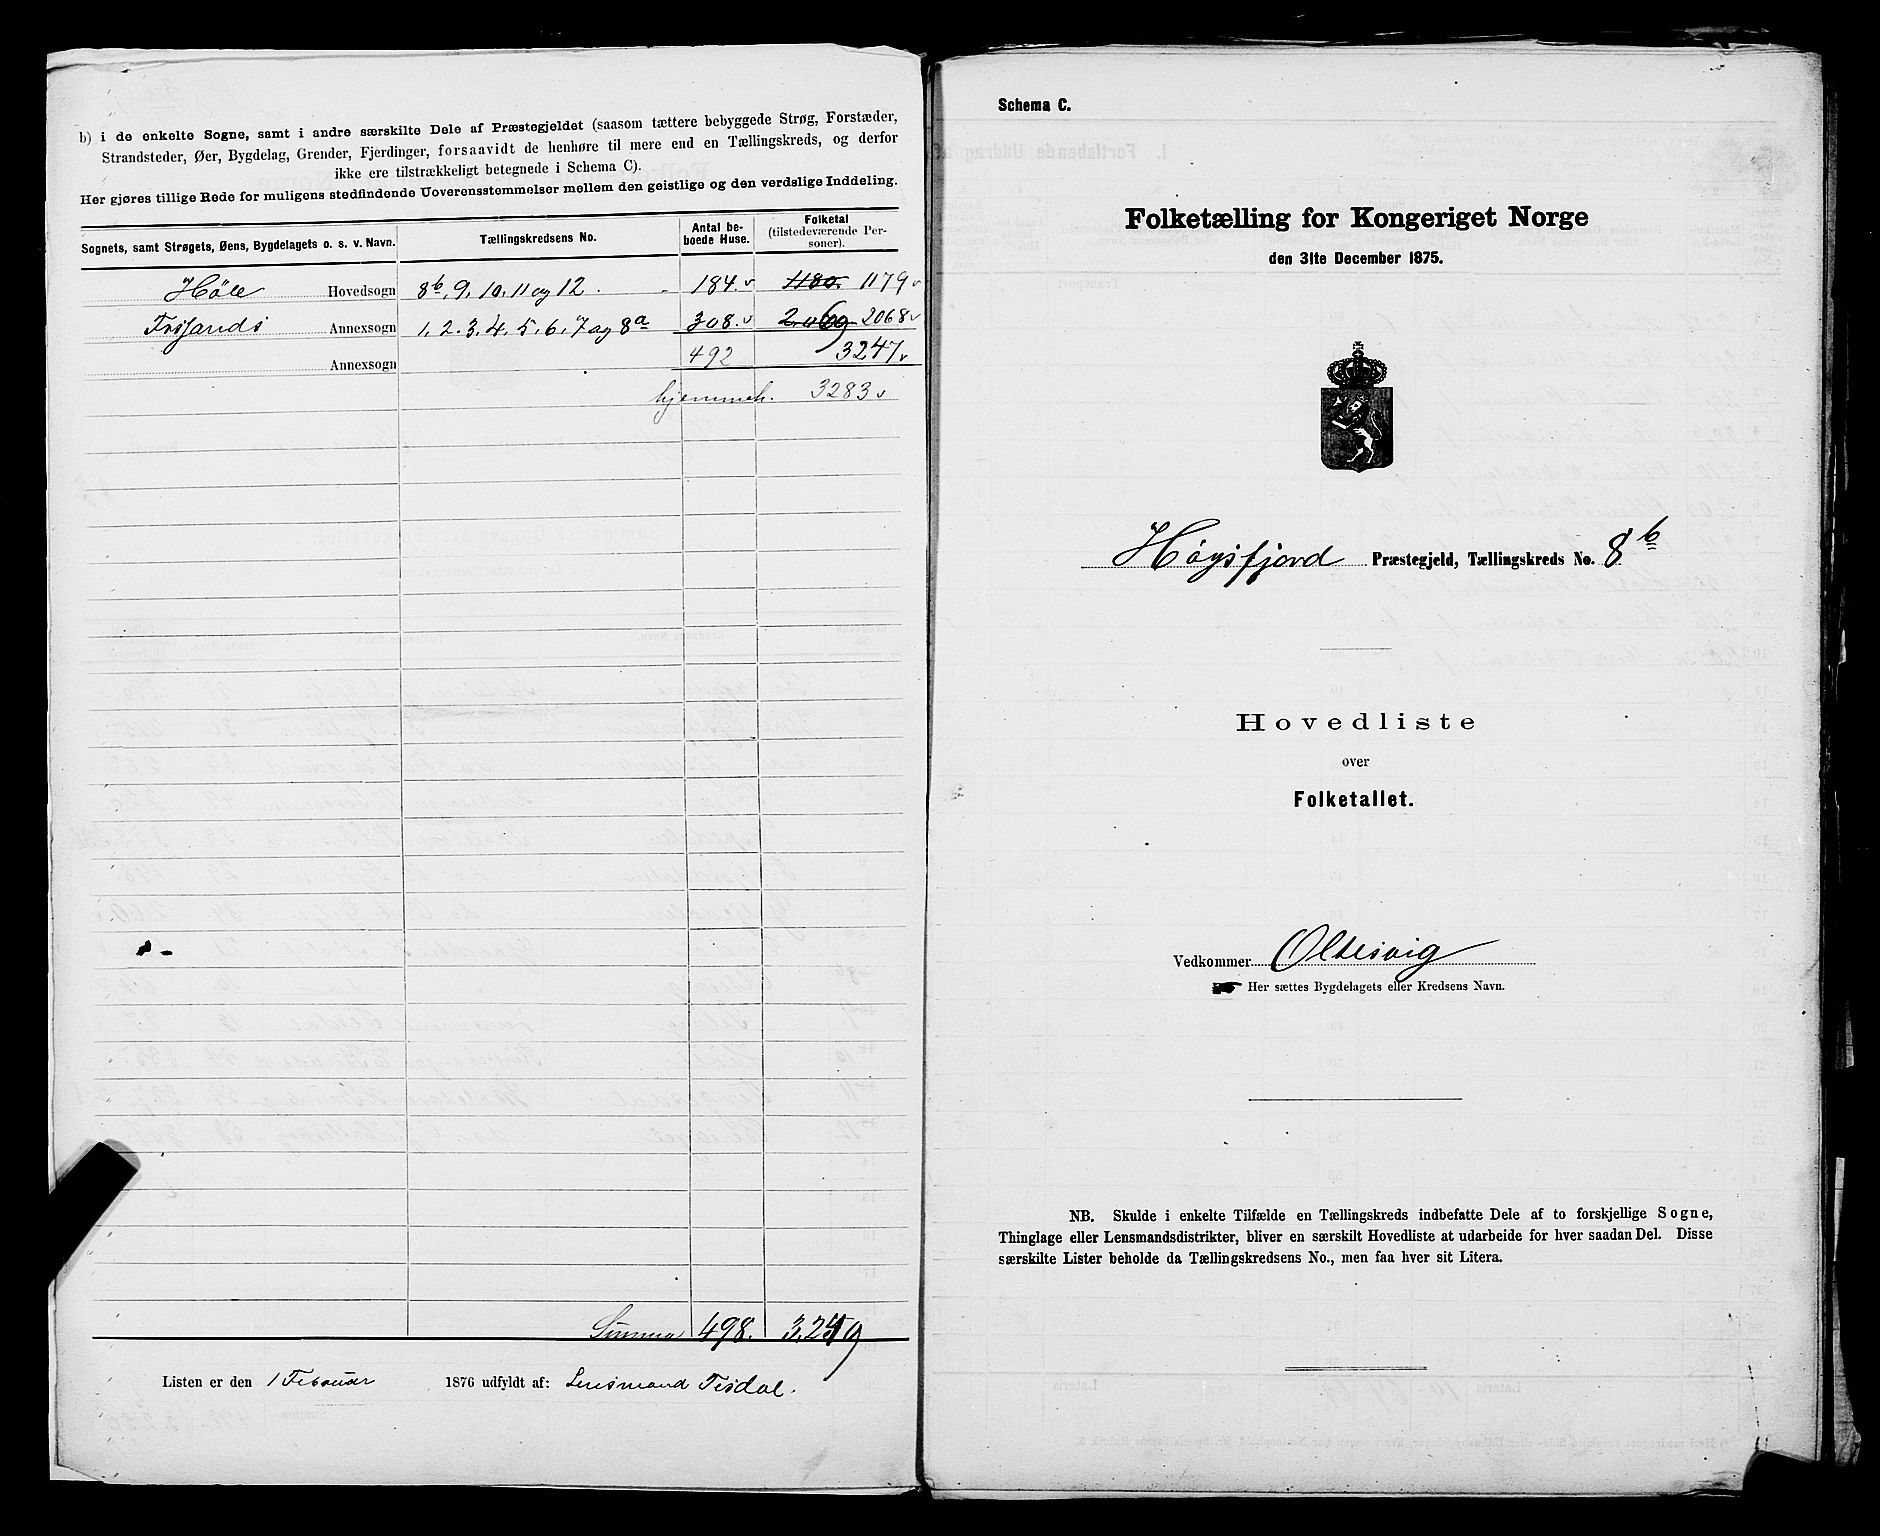 b) i de enkelte Sogne, samt i andre særskilte Dele af Præstegjeldet (saasom tættere bebyggede Strøg, Forstæder,
Strandsteder, Øer, Bygdelag, Grender, Fjerdinger, forsaavidt de henhøre til mere end en Tællingskreds, og derfor
ikke ere tilstrækkeligt betegnede i Schema C).
Her gjøres tillige Rede for muligens stedfindende Uoverensstemmelser mellem den geistlige og den verdslige Inddeling.
Sognets, samt Strøgets, Øens, Bygdelagets o. s. v. Navn. Tællingskredsens No. Antal beboede Huse. Folketal (tilstedeværende Personer).
Høle Hovedsogn 8b, 9, 10, 11 og 12. 184. 1180. 1179
Fossands Annexsogn 1, 2. 3. 4. 5. 6. 7 og 8a 308. 2069 2068
Annexsogn 492 3247
hjemmeh. 3283
Summa 498. 3,249
Listen er den 1 Februar 1876 udfyldt af: Lensmand Tisdal.
Schema C.
Folketælling for Kongeriget Norge
den 31te December 1875.
Høgsfjord Præstegjeld, Tællingskreds No. 8b
Hovedliste
over
Folketallet.
Vedkommer Oltesvig
Her sættes Bygdelagets eller Kredsens Navn.
NB. Skulde i enkelte Tilfælde en Tællingskreds indbefatte Dele af to forskjellige Sogne,
Thinglage eller Lensmandsdistrikter, bliver en særskilt Hovedliste at udarbeide for hver saadan Del. Disse
særskilte Lister beholde da Tællingskredsens No., men faa hver sit Litera.